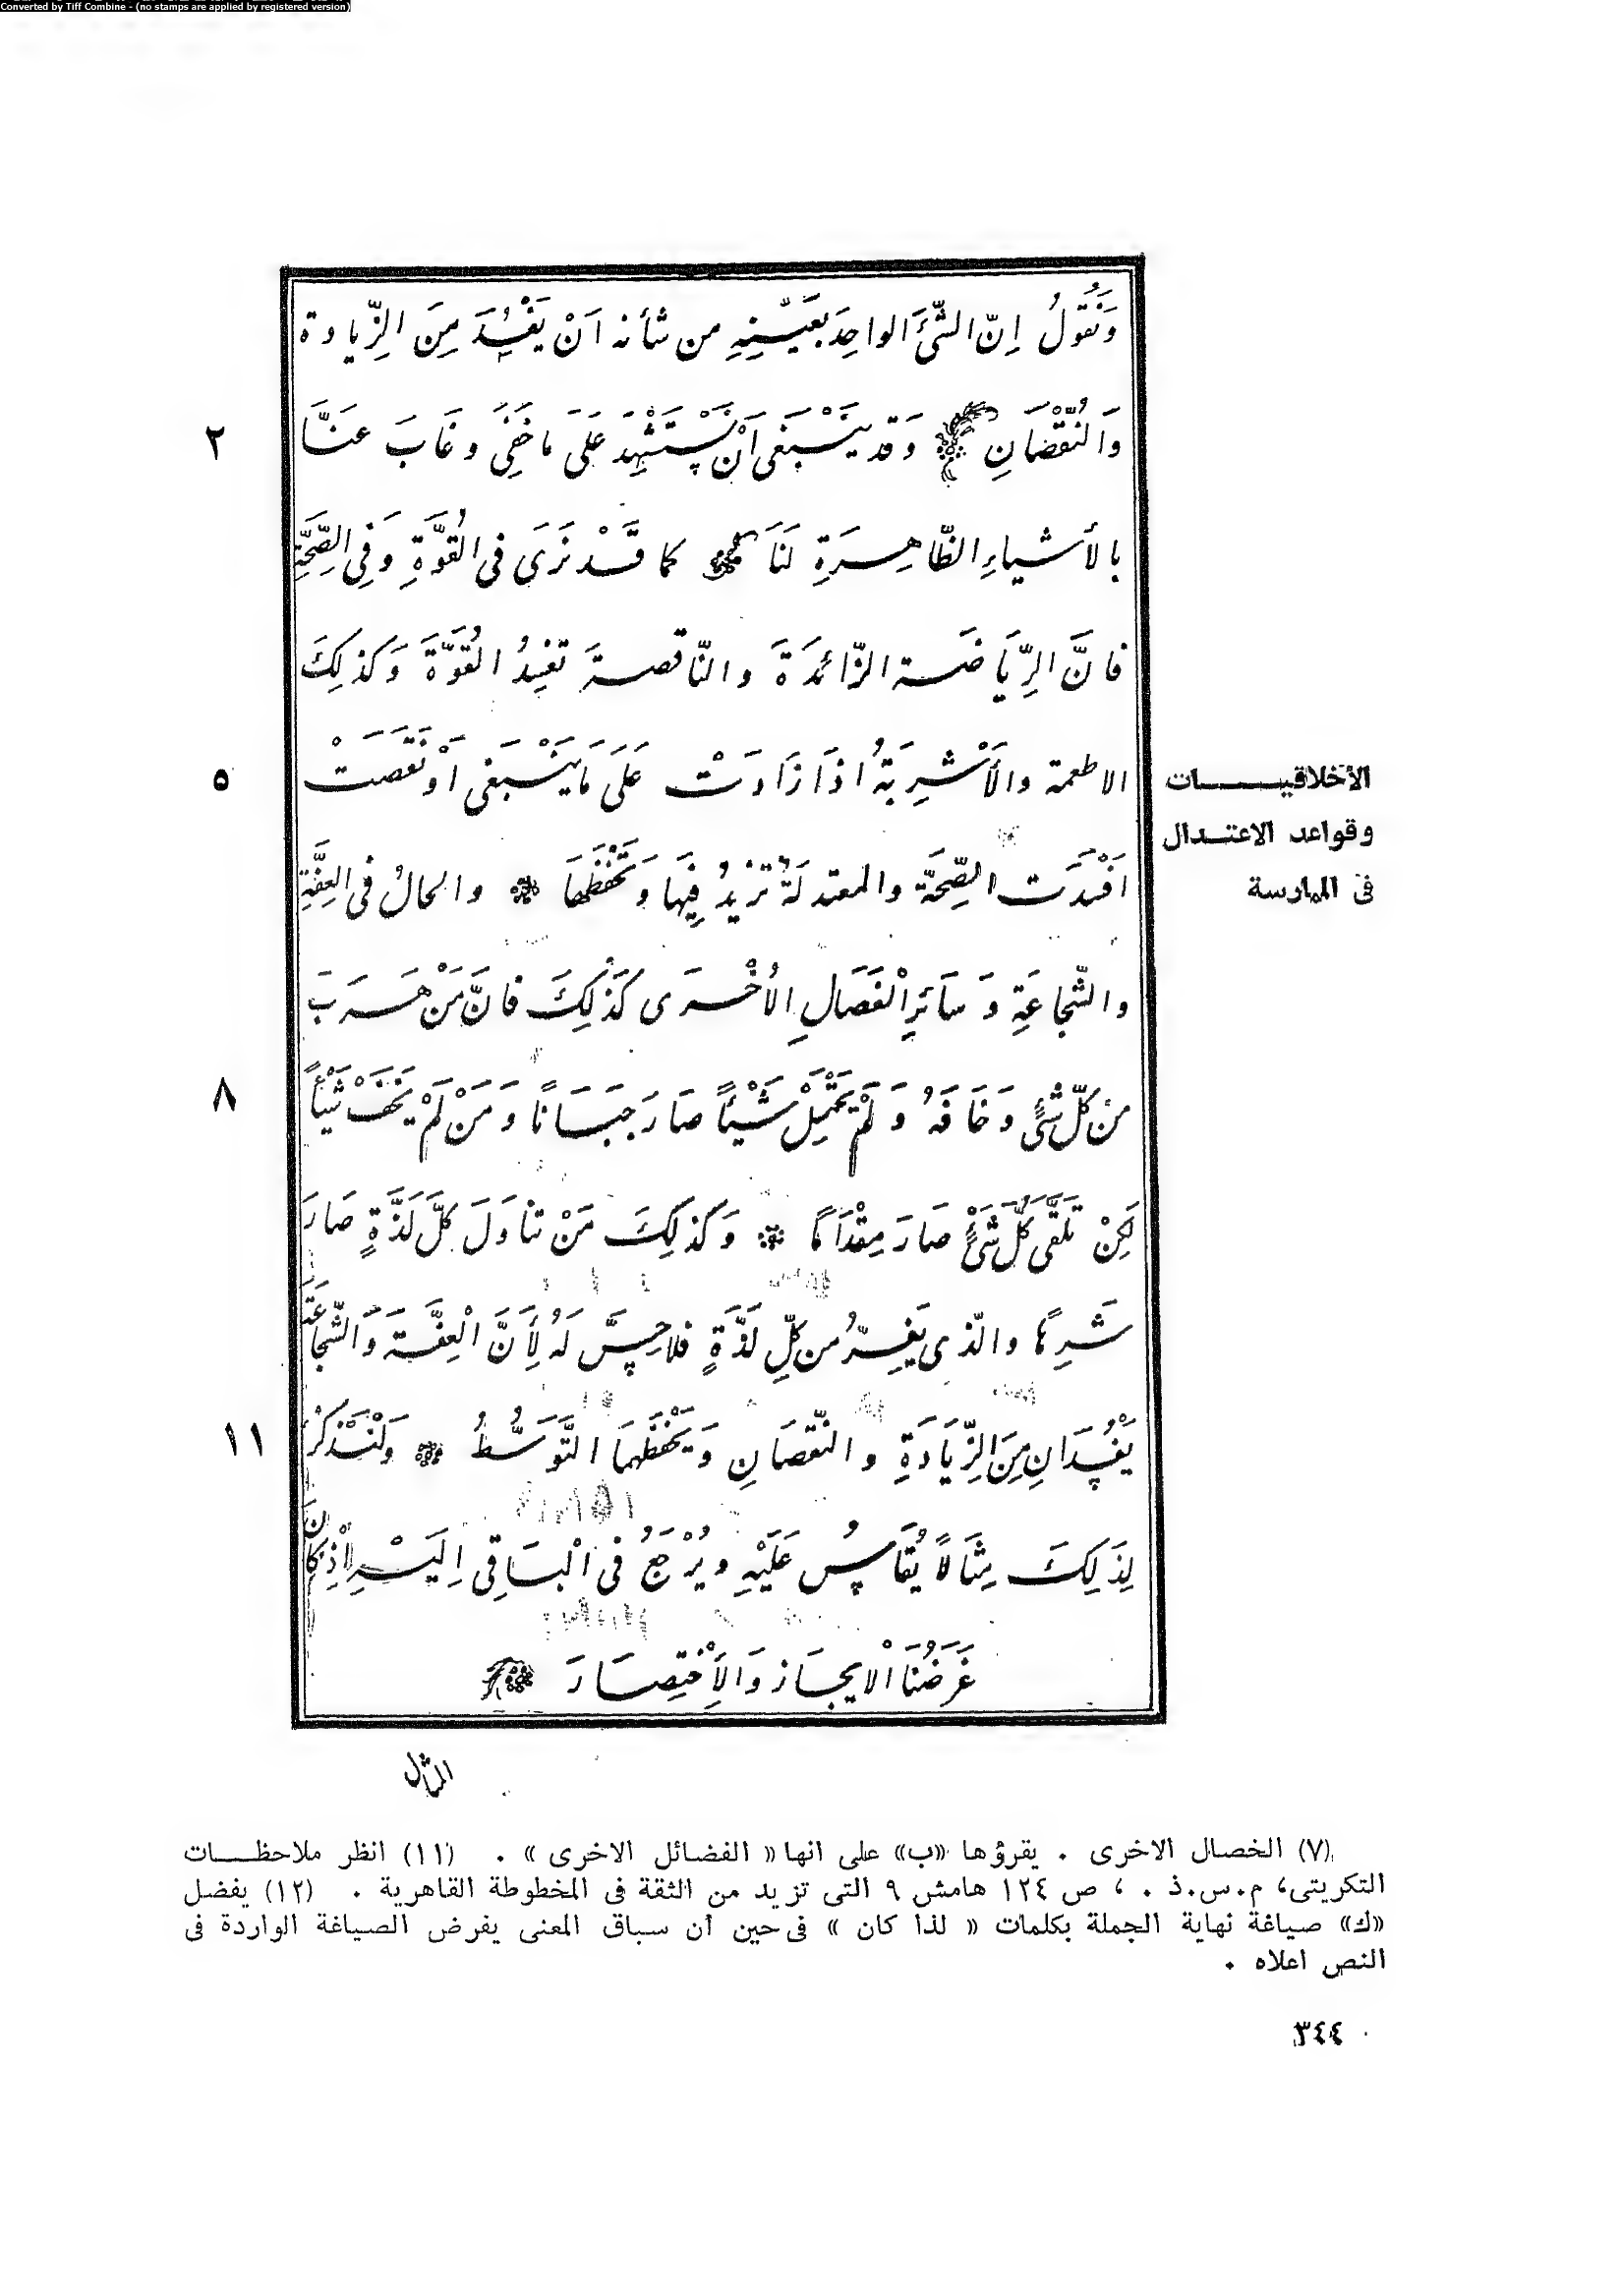 Converted by Tiff Combine - (no stamps are applied by registered version)
وَنَقُولُ إنّ الشَّئَ الواحِدَ بعَيْنِهِ من شأنه اَنْ يَفْسُدَ مِنَ الزِّيادة
وَالنُّقْصَانِ وَقد يَنْبَغى اَنْ نَسْتَشْهِدَ عَلَى ماخَفِىَ وغَابَ عنَّا
٢
بالأشياءِ الظّاهِرَةِ لَنَا كما قَدْ نَرَى فى القُوَّةِ وَفِى الصِّحَّةِ
فانَّ الرِّيَاضَة الزّائدَةَ والنّاقصةَ تفسِدُ القُوَّةَ وَكذلِكَ
الاطعمة والأَشْرِبَةُ اذَا زَادَتْ عَلَى مَايَنْبَغى اَوْنَقَصَتْ
٥
الأخلاقيات
وقواعد الاعتدال
فى الممارسة
افْسَدَت الصِّحَّة والمعتدلَةُ تزيدُ فِيهَا وَتَحْفَظهَا والحالُ فى العِفَّةِ
والشّجاعَةِ وَسَائرِ الْفَصَالِ الأُخْرَى كَذَلِكَ فانَّ مَنْ هَرَبَ
مِنْ كلّ شئٍ وَخَافَهُ وَلَمْ يَحْتَمِلْ شَيْئاً صَارَ جَبَانًا وَمَنْ لَمْ يَخَفْ شَيْئاً
٨
لَكِنْ تَلَقَّى كُلَّ شَئٍْ صَارَ مِقْدَامًا وَكذلِكَ مَنْ تناوَلَ كلَّ لَذَّةٍ صَارَ
شَرِهًا والّذى يَفِرُّ من كلِّ لَذَّةٍ فلاحِسَّ لَهُ لأَنَّ الْعِفَّةَ وَالشّجَاعَةَ
يَفْسُدَانِ مِنَ الزِّيَادَةِ والنّقصَانِ وَيَحْفَظُهمَا التَّوَسُّطُ وَلْنَذْكُرْ
١١
لِذَلِكَ مِثَالاً يُقَاسُ عَلَيْهِ ويُرْجَعُ فى الْبَاقِى اِلَيْهِ اِذْ كَانَ
غَرَضُنَا الْايجَاز وَالأِخْتِصَارَ
المثال
(٧) الخصال الاخرى . يقرؤها «ب» على انها « الفضائل الاخرى » . (١١) انظر ملاحظات
التكريتى، م.س.ذ . ، ص ١٢٤ هامش ٩ التى تزيد من الثقة فى المخطوطة القاهرية . (١٢) يفضل
«ك» صياغة نهاية الجملة بكلمات « لذا كان » فى حين أن سباق المعنى يفرض الصياغة الواردة فى
النص اعلاه .
٣٤٤